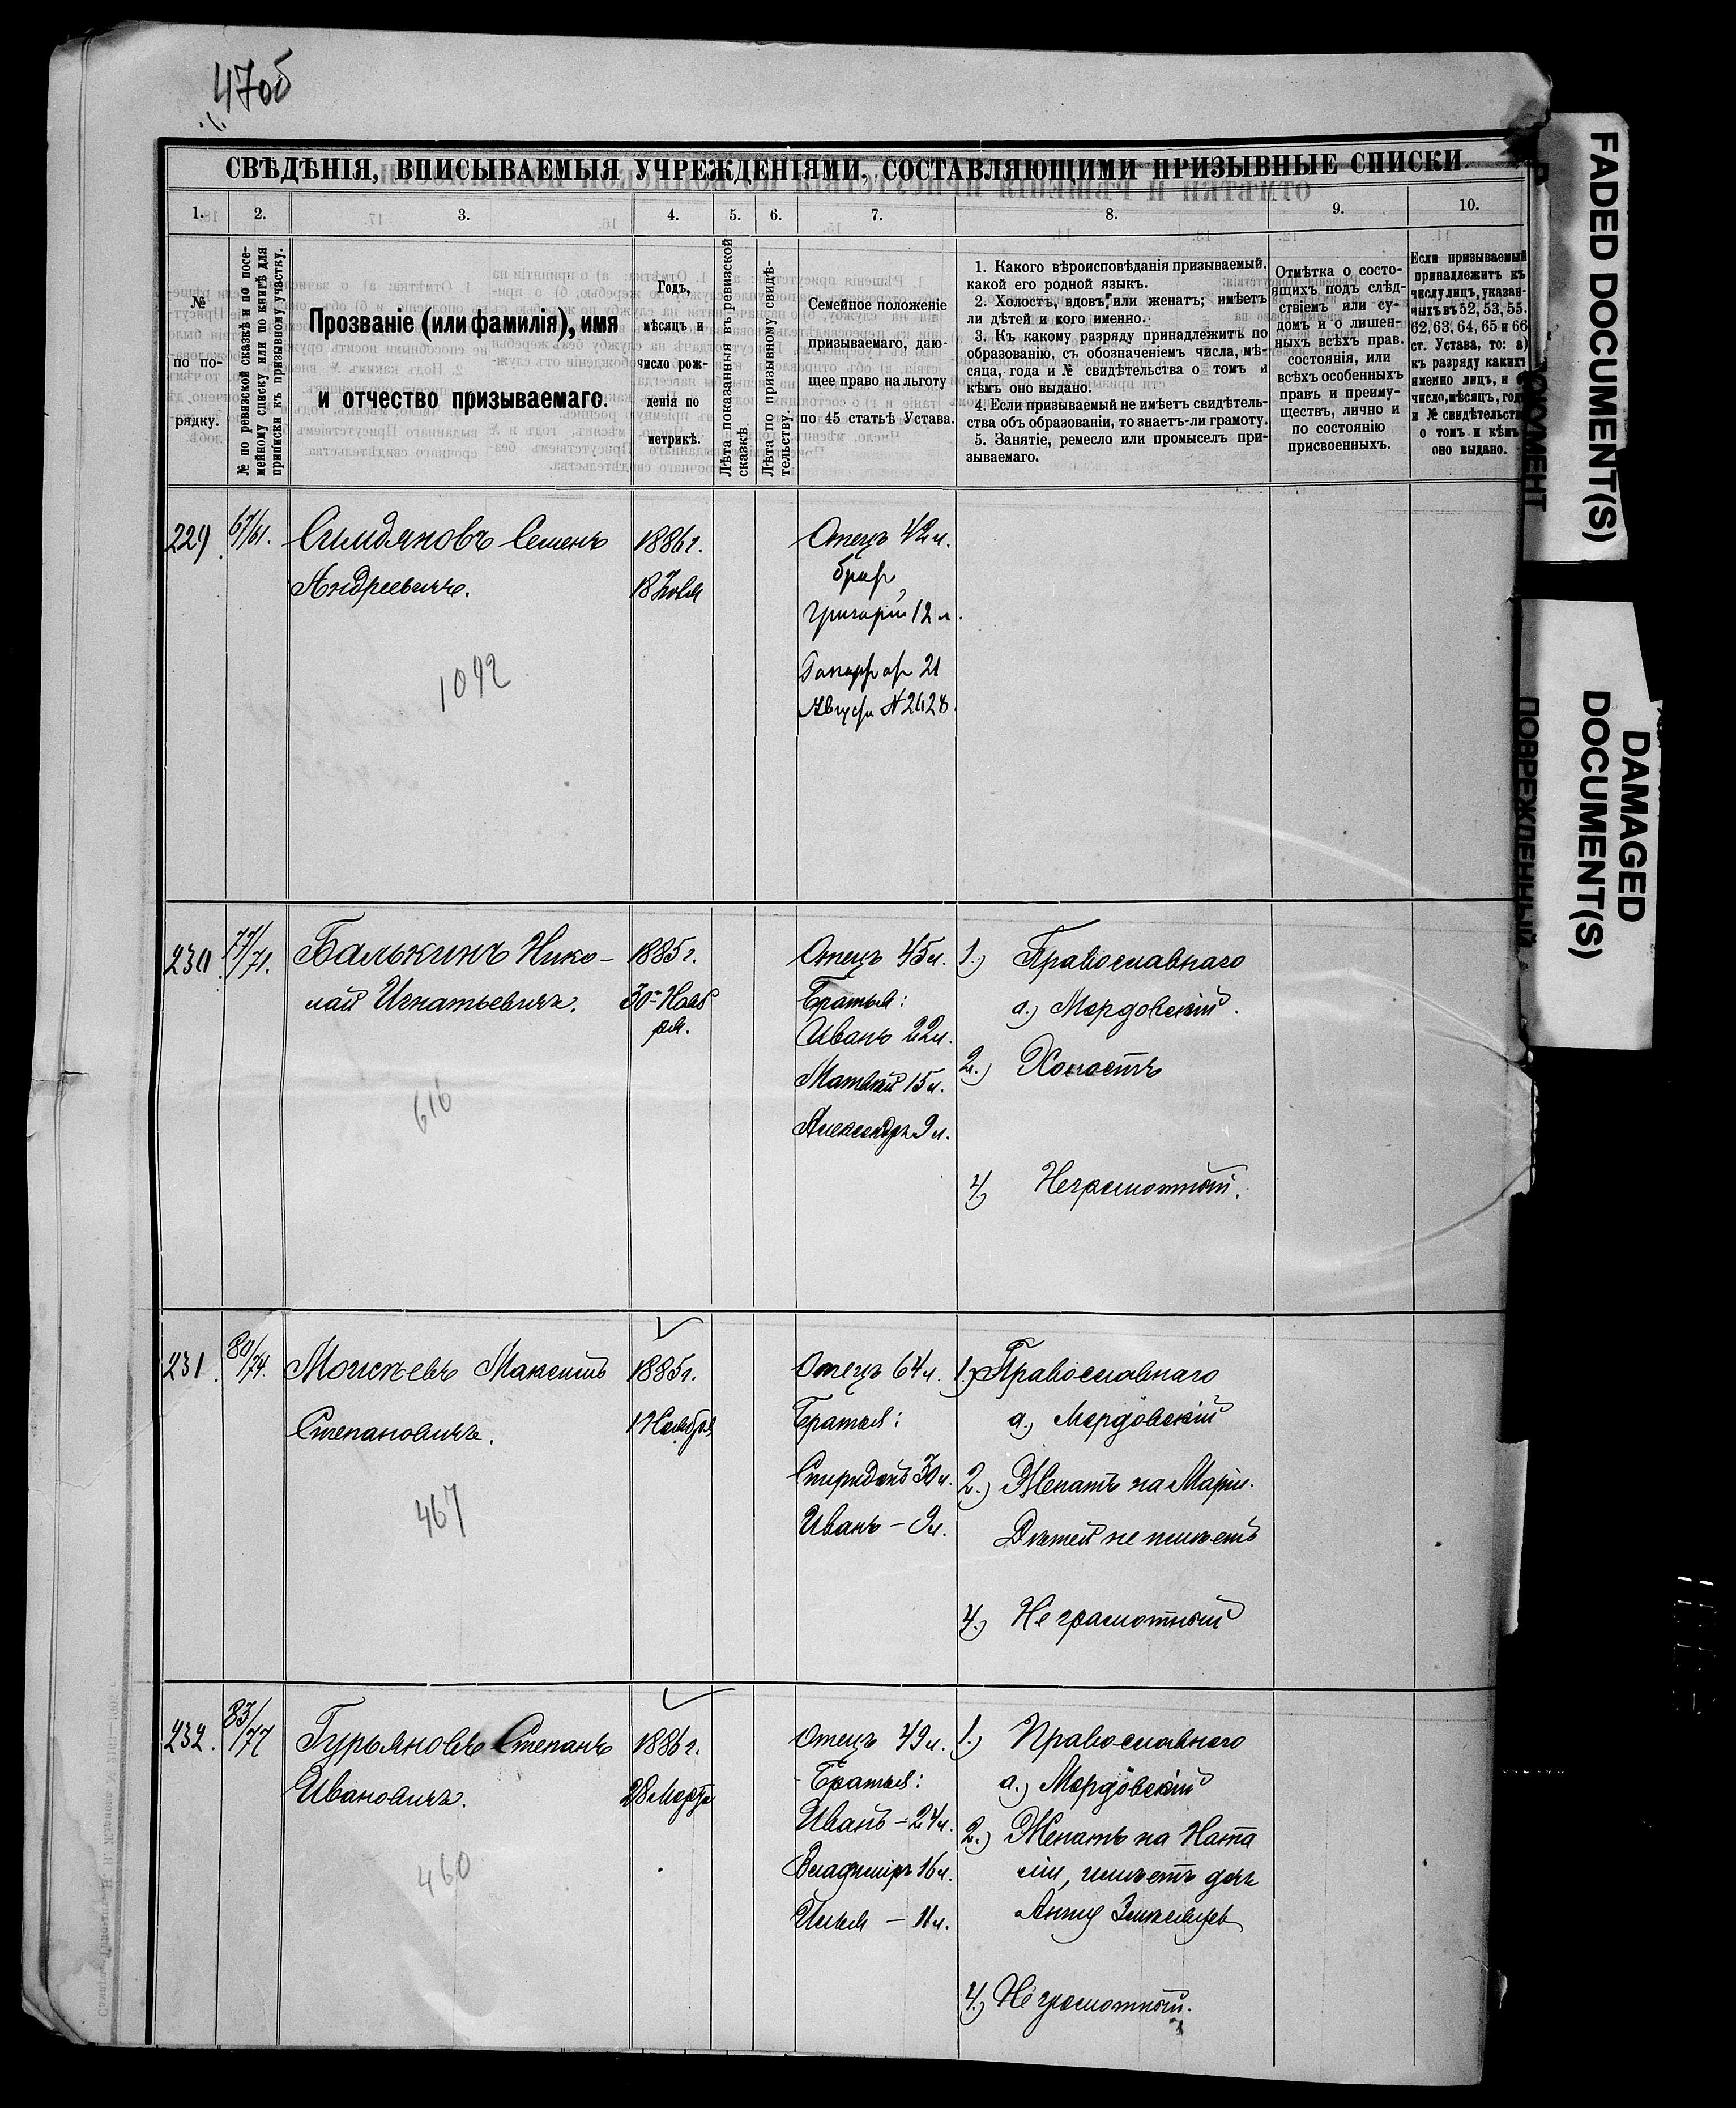 47об
СВѢДѢНІЯ, ВПИСЫВАЕМЫЯ УЧРЕЖДЕНІЯМИ, СОСТАВЛЯЮЩИМИ ПРИЗЫВНЫЕ СПИСКИ.
1. 2. 3. 4. 5. 6. 7. 8. 9. 10.
№
по по-
рядку.
№ по ревизской сказкѣ и по посе-
мейному списку или по книгѣ для
приписки къ призывному участку.
Прозваніе (или фамилія), имя
и отчество призываемаго.
Годъ,
мѣсяцъ и
число рож-
денія по
метрикѣ.
Лѣта показанныя въ ревизской
сказкѣ
Лѣта по призывному свидѣ-
тельству.
Семейное положеніе
призываемаго, даю-
щее право на льготу
по 45 статьѣ Устава.
1. Какого вѣроисповѣданія призываемый,
какой его родной языкъ.
2. Холостъ, вдовъ или женатъ; имѣетъ
ли дѣтей и кого именно.
3. Къ какому разряду принадлежитъ по
образованію, съ обозначеніемъ числа, мѣ-
сяца, года и № свидѣтельства о томъ и
кѣмъ оно выдано.
4. Если призываемый не имѣетъ свидѣтель-
ства объ образованіи, то знаетъ-ли грамоту.
5. Занятіе, ремесло или промыселъ при-
зываемаго.
Отмѣтка о состо-
ящихъ подъ слѣд-
ствіемъ или су-
домъ и о лишен-
ныхъ всѣхъ прав.
состоянія, или
всѣхъ особенныхъ
правъ и преиму-
ществъ, лично и
по состоянію
присвоенныхъ.
Если призываемый
принадлежитъ къ
числу лицъ, указан-
ныхъ въ 52, 53, 55.
62, 63, 64, 65 и 66
ст. Устава, то: а)
къ разряду какихъ
именно лицъ, и
число, мѣсяцъ, год
и № свидѣтельств
о томъ и кѣмъ
оно выдано.
229
67/61.
Симдяновъ Семенъ
Андреевичъ.
1092
1886 г.
18
Отецъ 42 л.
брат
Григорій 12 л.
21
Август № 2428
230
77/71.
Балькинъ Нико-
лай Игнатьевичъ.
616
1885 г.
30-Нояб
ря.
Отецъ 45 л.
Братья:
Иванъ 22 л.
Матвѣй 15 л.
Александръ 9 л.
1.) Православнаго
а.) Мордовскій.
2.) Холостъ
4) Неграмотный.
231.
80/74.
Моисѣевъ Максимъ
Степановичъ.
467
1885 г.
Ноября
Отецъ 64 л.
Братья:
Спиридонъ 30 л.
Иванъ – 9 л.
1.) Православнаго
а.) Мордовскій
2.) Женатъ на Маріи.
Дѣтей не имѣетъ
4.) Не грамотный
232.
83/77
Гурьяновъ Степанъ
Ивановичъ.
460
1886 г.
28 Марта
Отецъ 49 л.
Братья:
Иванъ – 24 л.
Владиміръ 16 л.
Илья – 11 л.
1.) Православнаго
а.) Мордовскій
2.) Женатъ на Ната
ліи, имѣетъ дочь
Анну
4.) Не грамотный.
FADED DOCUMENT(S)
DAMAGED
DOCUMENT(S)
ПОВРЕЖДЕННЫЙ